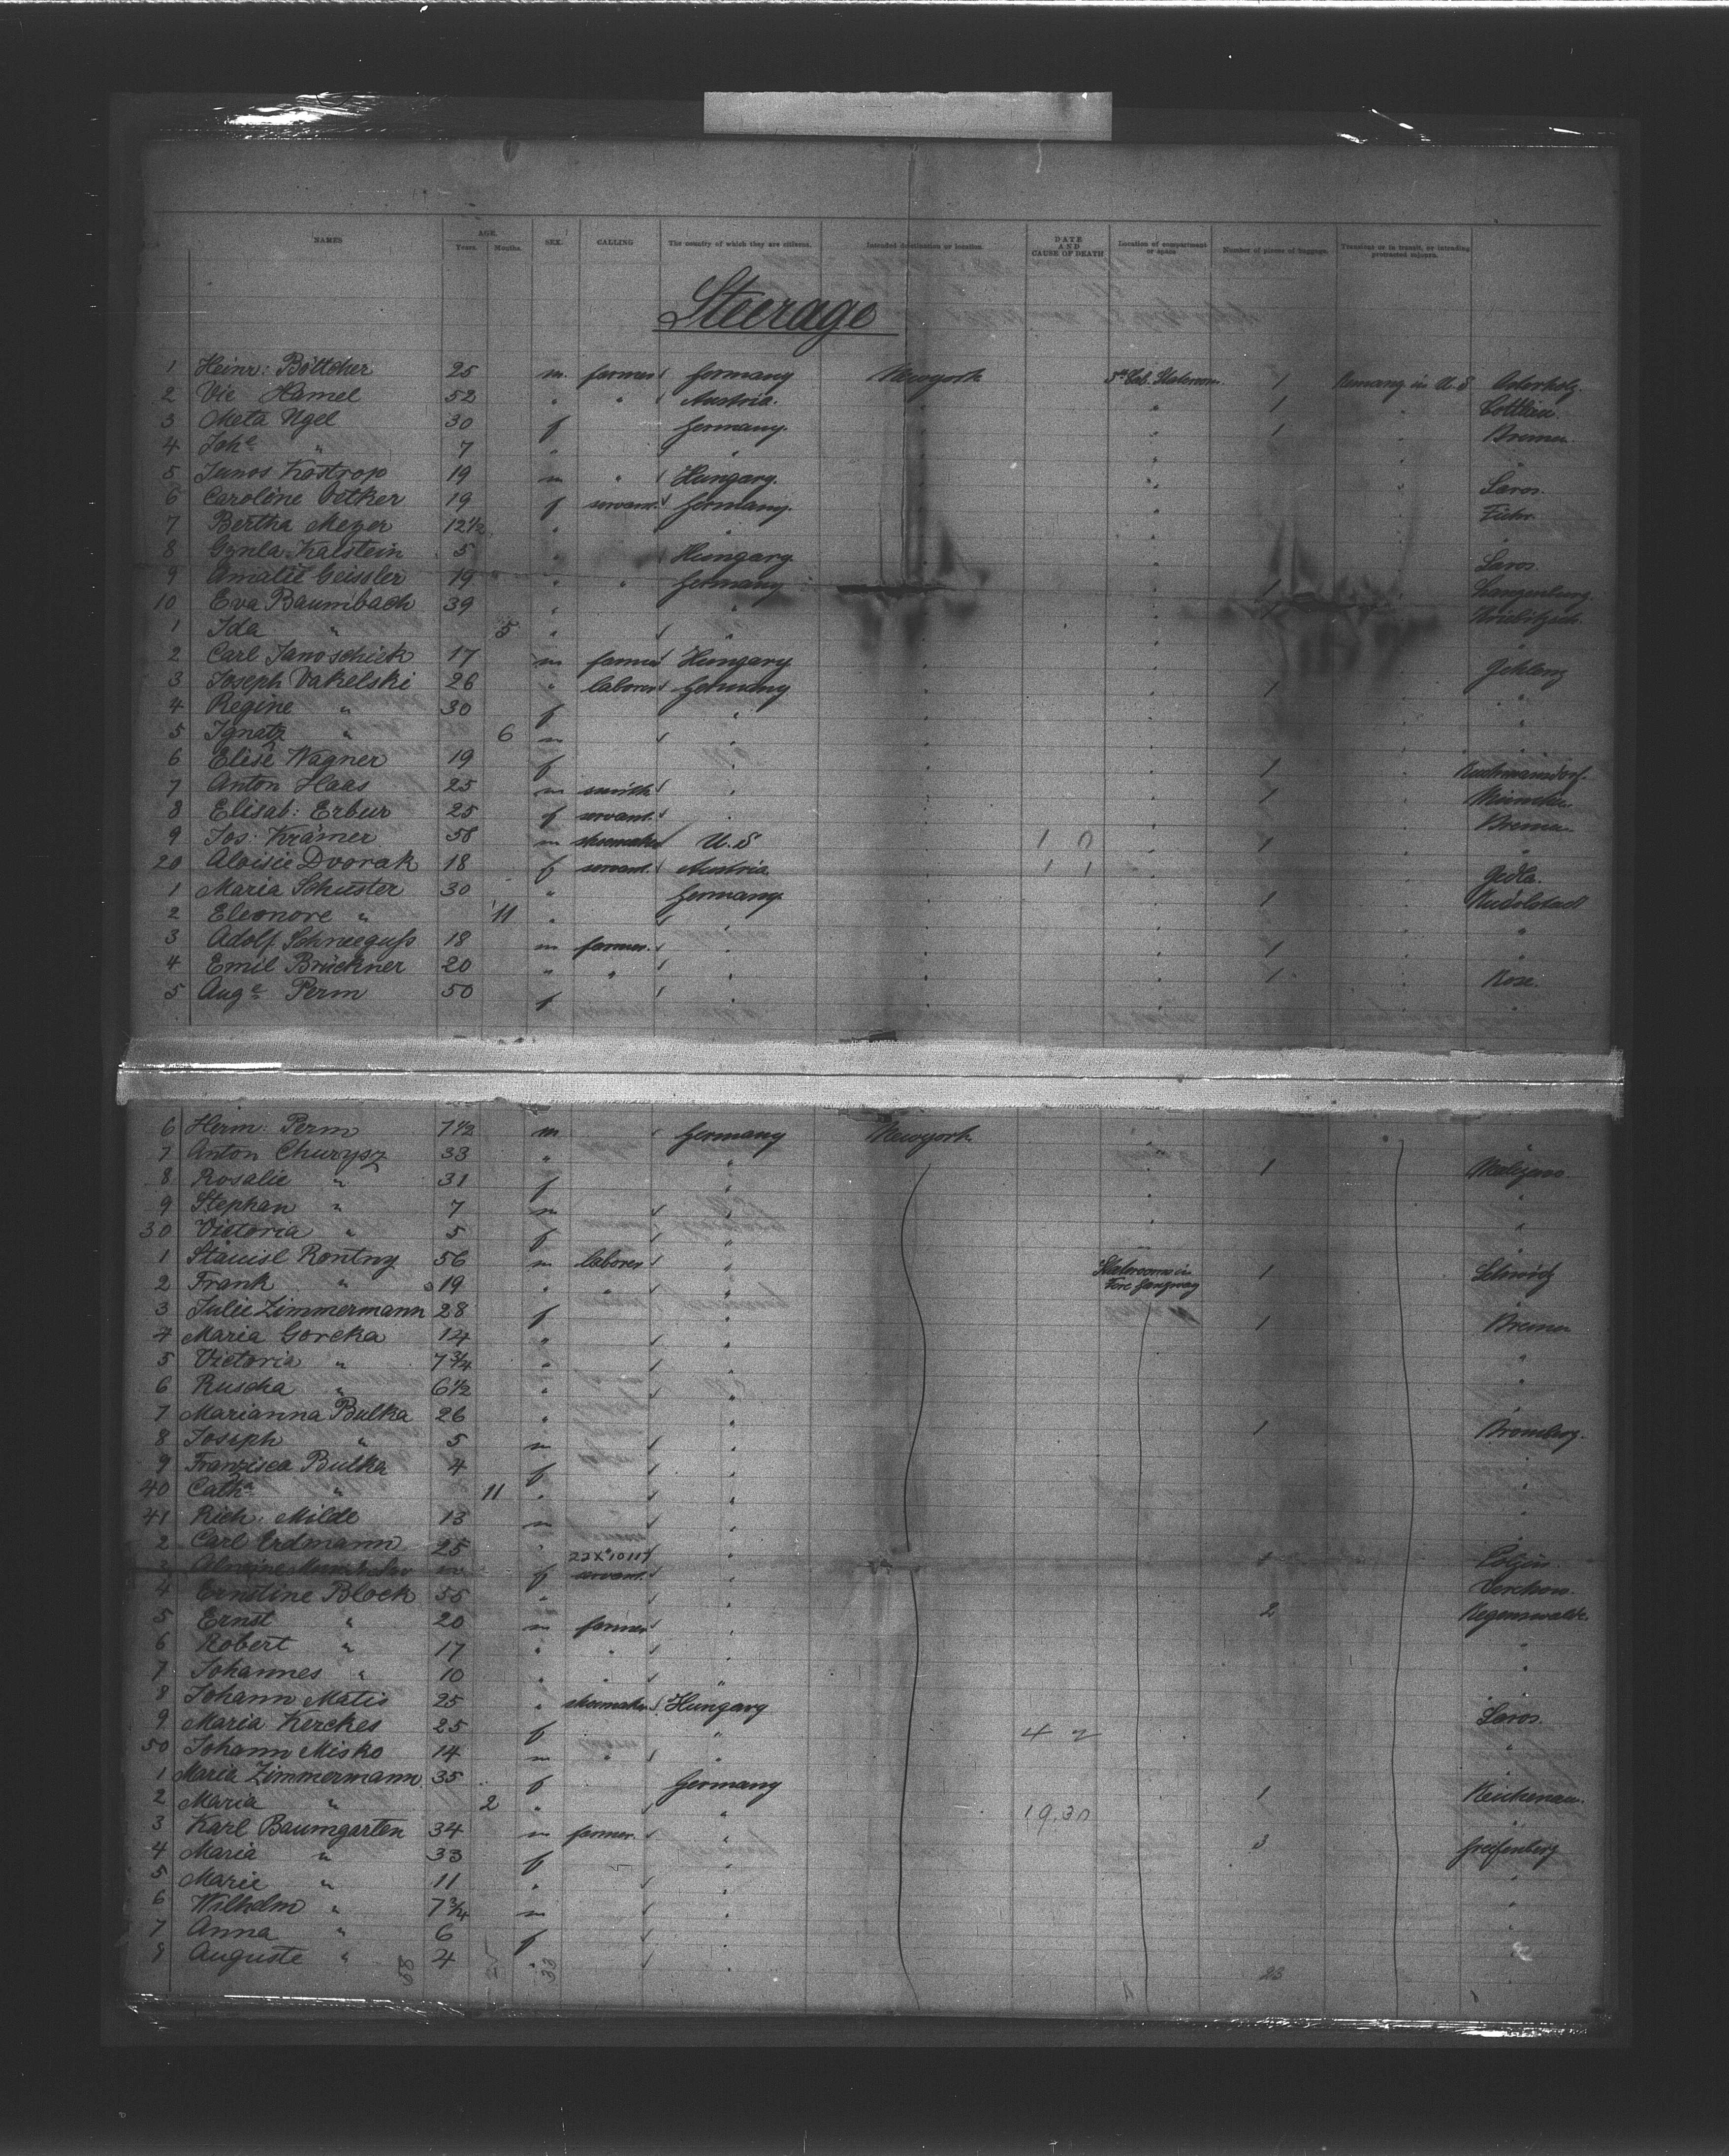 NAMES AGE. Years. Months. SEX. CALLING The country of which they are citizens. Intended destination or location. DATE AND CAUSE OF DEATH Location of compartment or space Number of pieces of baggage. Transient or in transit, or intending protracted sojourn.
Steerage
1 Heinr: Böttcher 25 m. farmer Germany Newyork Stateroom 1 Remang in U.S
2 Vic Hamel 52 " " Austria. " " 1 "
3 Meta Ugel 30 f Germany. " " 1 " Bremen
4 Johe " 7 " " " " " "
5 Junos Kostrop 19 m " Hungary. " " " Saros.
6 Caroline Oetker 19 f servant. Germany. " "
7 Bertha Meyer 12 1/2 " " "
8 Gynla Kalstein 5 " Hungary " Saros.
9 Amalie Geissler 19 " " Germany " 1 Langenburg.
10 Eva Baumbach 39 " " " 1
1 Ida " 5 " " "
2 Carl Janoschick 17 m farmer Hungary " "
3 Joseph Vakelski 26 " laborer Germany " " 1 " "
4 Regine " 30 f " " " " "
5 Ignatz " 6 m " " " " "
6 Elise Wagner 19 f " " " 1 "
7 Anton Haas 25 m smith " " " 1 " München
8 Elisab: Erbur 25 f servant. " " " " Bremen
9 Jos: Krämer 58 m shoemaker U.S " " 1 " "
20 Aloisie Dvorak 18 f servant. Austria " " "
1 Maria Schuster 30 " Germany. " " 1 " Rudolstad
2 Eleonore " 11 " " " " " "
3 Adolf Schneeguss 18 m farmer. " " " 1 " "
4 Emil Brückner 20 " " " " " 1 " Rose.
5 Auge Perm 50 f " " " " "
6 Herm: Perm 7 1/2 m Germany Newyork " "
7 Anton Churysz 33 " " " 1
8 Rosalie " 31 f " " "
9 Stephan " 7 m " " "
30 Victoria " 5 f " "
1 Stanisl Rontny 56 m laborer " Staterooms in Fore Gangway 1
2 Frank " 19 " " " "
3 Julie Zimmermann 28 f " 1 Bremen
4 Maria Gorcka 14 " " "
5 Victoria " 7 3/4 " " "
6 Ruscha " 6 1/2 " " "
7 Marianna Bulka 26 " " 1 Bromberg.
8 Joseph " 5 m " "
9 Franzisca Bulka 4 f " "
40 Catha " 11 " " "
41 Rich: Milde 13 m "
2 Carl Erdmann 25 " "
3 f servant. "
4 Ernstine Block 55 " " 2 Regenwalde
5 Ernst " 20 m farmer " "
6 Robert " 17 " " " "
7 Johannes " 10 " " " "
8 Johann Matis 25 " shoemaker Hungary Saros.
9 Maria Kerckes 25 f " "
50 Johann Misko 14 m " " "
1 Maria Zimmermann 35 f Germany 1 Reichenau.
2 Maria " 2 " " "
3 Karl Baumgarten 34 m farmer. " 3 Greifenberg
4 Maria " 33 f " "
5 Marie " 11 " " "
6 Wilhelm " 7 3/4 m " "
7 Anna " 6 f " "
8 Auguste " 4 " " "
58 33 23